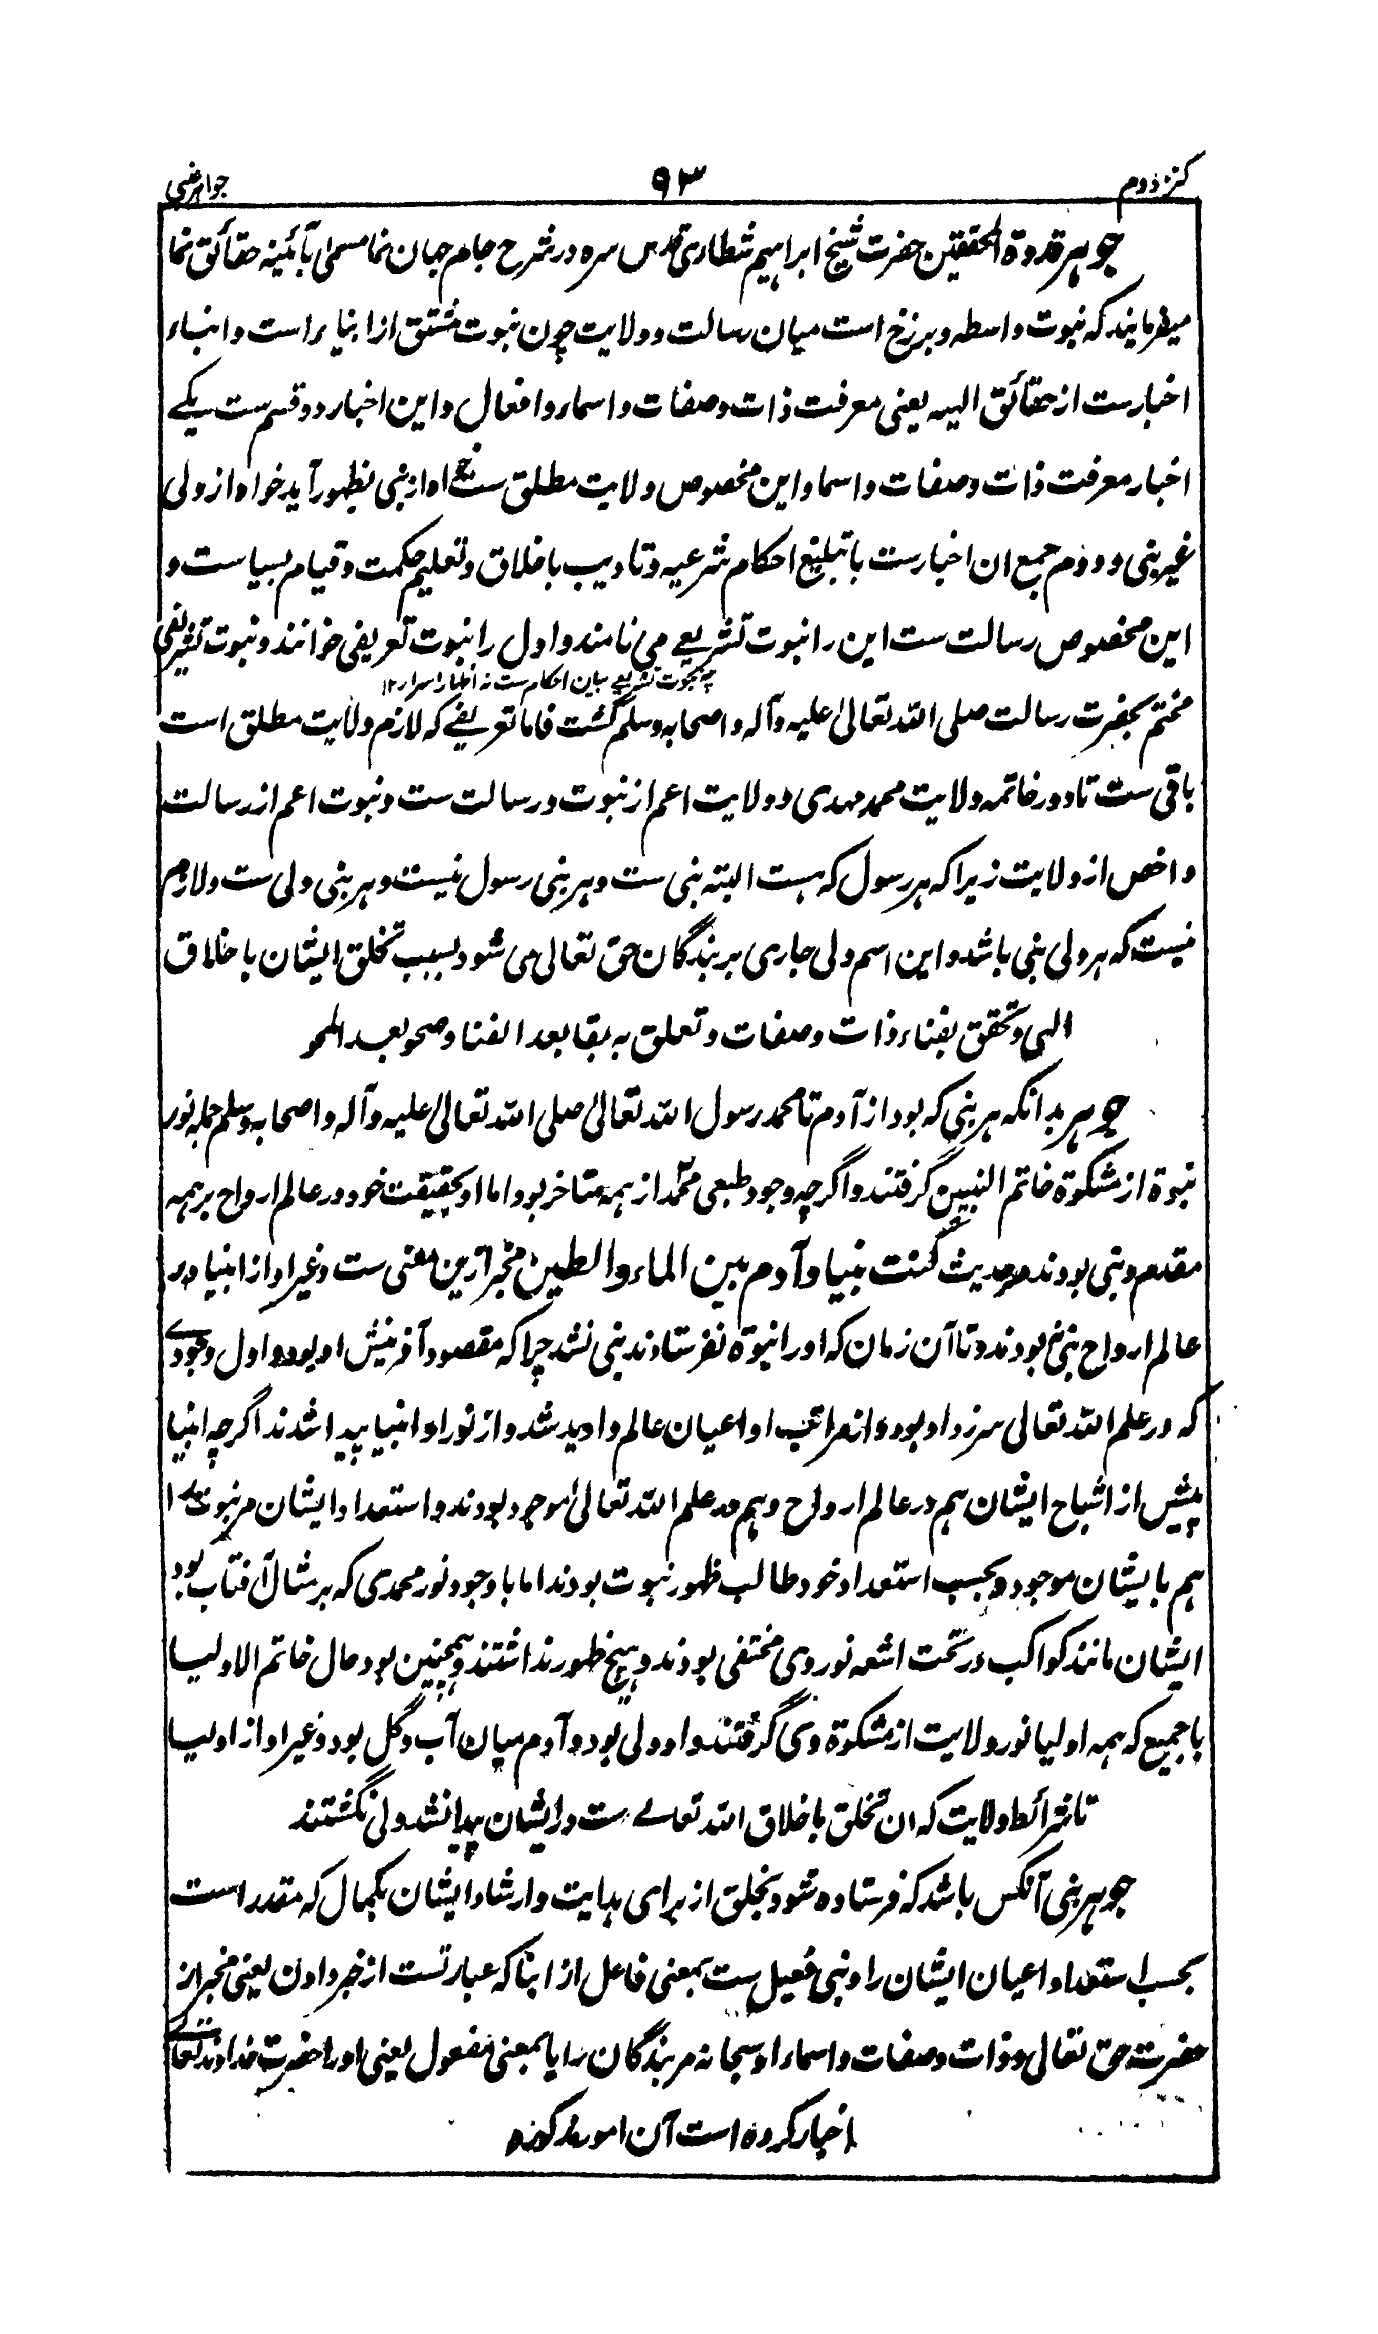 کنز دوم ۹۳ جواهر غیبی
جوهر قدوة المحققین حضرت شیخ ابراهیم شطاری قدس سره در شرح جام جهان نما مسمی بآئینه حقائق نما
میفرمایند که نبوت واسطه و برزخ است میان رسالت و ولایت چون نبوت مشتق از انباء است و انباء
اخبارست از حقائق الهیه یعنی معرفت ذات و صفات و اسماء و افعال و این اخبار دو قسم ست یکے
اخبار معرفت ذات و صفات و اسما و این مخصوص ولایت مطلق ست خواه از نبی بظهور آید خواه از ولی
غیر نبی و دوم جمع ان اخبارست با تبلیغ احکام شرعیه و تادیب باخلاق و تعلیم حکمت و قیام بسیاست و
این مخصوص رسالت ست این را نبوت تشریعے می نامند و اول را نبوت تعریفی خوانند و نبوت تشریعی
چه نبوت تشریعے بیان احکام ست نه اظهار اسرار ۱۲
مختتم بحضرت رسالت صلی الله تعالیٰ علیه وآله و اصحابه وسلم گشت فاما تعریفے که لازم ولایت مطلق است
باقی ست تا دور خاتمه ولایت محمد مهدی و ولایت اعم از نبوت و رسالت ست و نبوت اعم از رسالت
و اخص از ولایت زیرا که هر رسول که هست البته نبی ست و هر نبی رسول نیست و هر نبی ولی ست و لازم
نیست که هر ولی نبی باشد و این اسم ولی جاری بر بندگان حق تعالی می شود بسبب تخلق ایشان باخلاق
الهی و تحقق بفناء ذات و صفات و تعلق به بقا بعد الفنا و صحو بعد المحو
جوهر بدانکه هر نبی که بود از آدم تا محمد رسول الله تعالیٰ صلی الله تعالیٰ علیه وآله و اصحابه وسلم جمله نور
نبوة از مشکوة خاتم النبیین گرفتند و اگرچه وجود طبعی محمد از همه متاخر بود اما او بحقیقت خود در عالم ارواح بر همه
مقدم و نبی بودند و حدیث کنت نبیا و آدم بین الماء والطین مخبر ازین معنی ست و غیر او از انبیا در
عالم ارواح نبی نبودند و تا آن زمان که او را نبوة نفرستادند نبی نشد چرا که مقصود آفرینش او بود و اول وجودے
که در علم الله تعالی سرزد او بود و از مراتب او اعیان عالم وادید شد و از نور او انبیا پیدا شدند اگرچه انبیا
پیش از اشباح ایشان هم در عالم ارواح و هم در علم الله تعالیٰ موجود بودند و استعداد ایشان مر نبوت را
هم بایشان موجود و بحسب استعداد خود طالب ظهور نبوت بودند اما با وجود نور محمدی که بر مثال آفتاب بود
ایشان مانند کواکب در تحت اشعه نور وی مختفی بودند و هیچ ظهور نداشتند و همچنین بود حال خاتم الاولیا
با جمیع که همه اولیا نور ولایت از مشکوة وی گرفتند و او ولی بود و آدم میان آب و گل بود و غیر او از اولیا
تا شرائط ولایت که ان تخلق باخلاق الله تعالے ست در ایشان پیدا نشد ولی نگشتند
جوهر نبی آنکس باشد که فرستاده شود بخلق از برای هدایت و ارشاد ایشان بکمال که مقدر است
بحسب استعداد اعیان ایشان را و نبی فعیل ست بمعنی فاعل از انبا که عبارتست از خبر دادن یعنی مخبر از
حضرت حق تعالی و ذات و صفات و اسماء او سبحانه مر بندگان را یا بمعنی مفعول یعنی او را حضرت خداوند تعالے
اخبار کرده است آن امور مذکوره